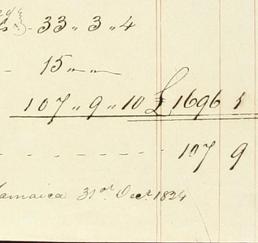 33 " 3 " 4
15 " "
107 " 9 " 10 £ 1696
107 9
Jamaica 31st Decr. 1824